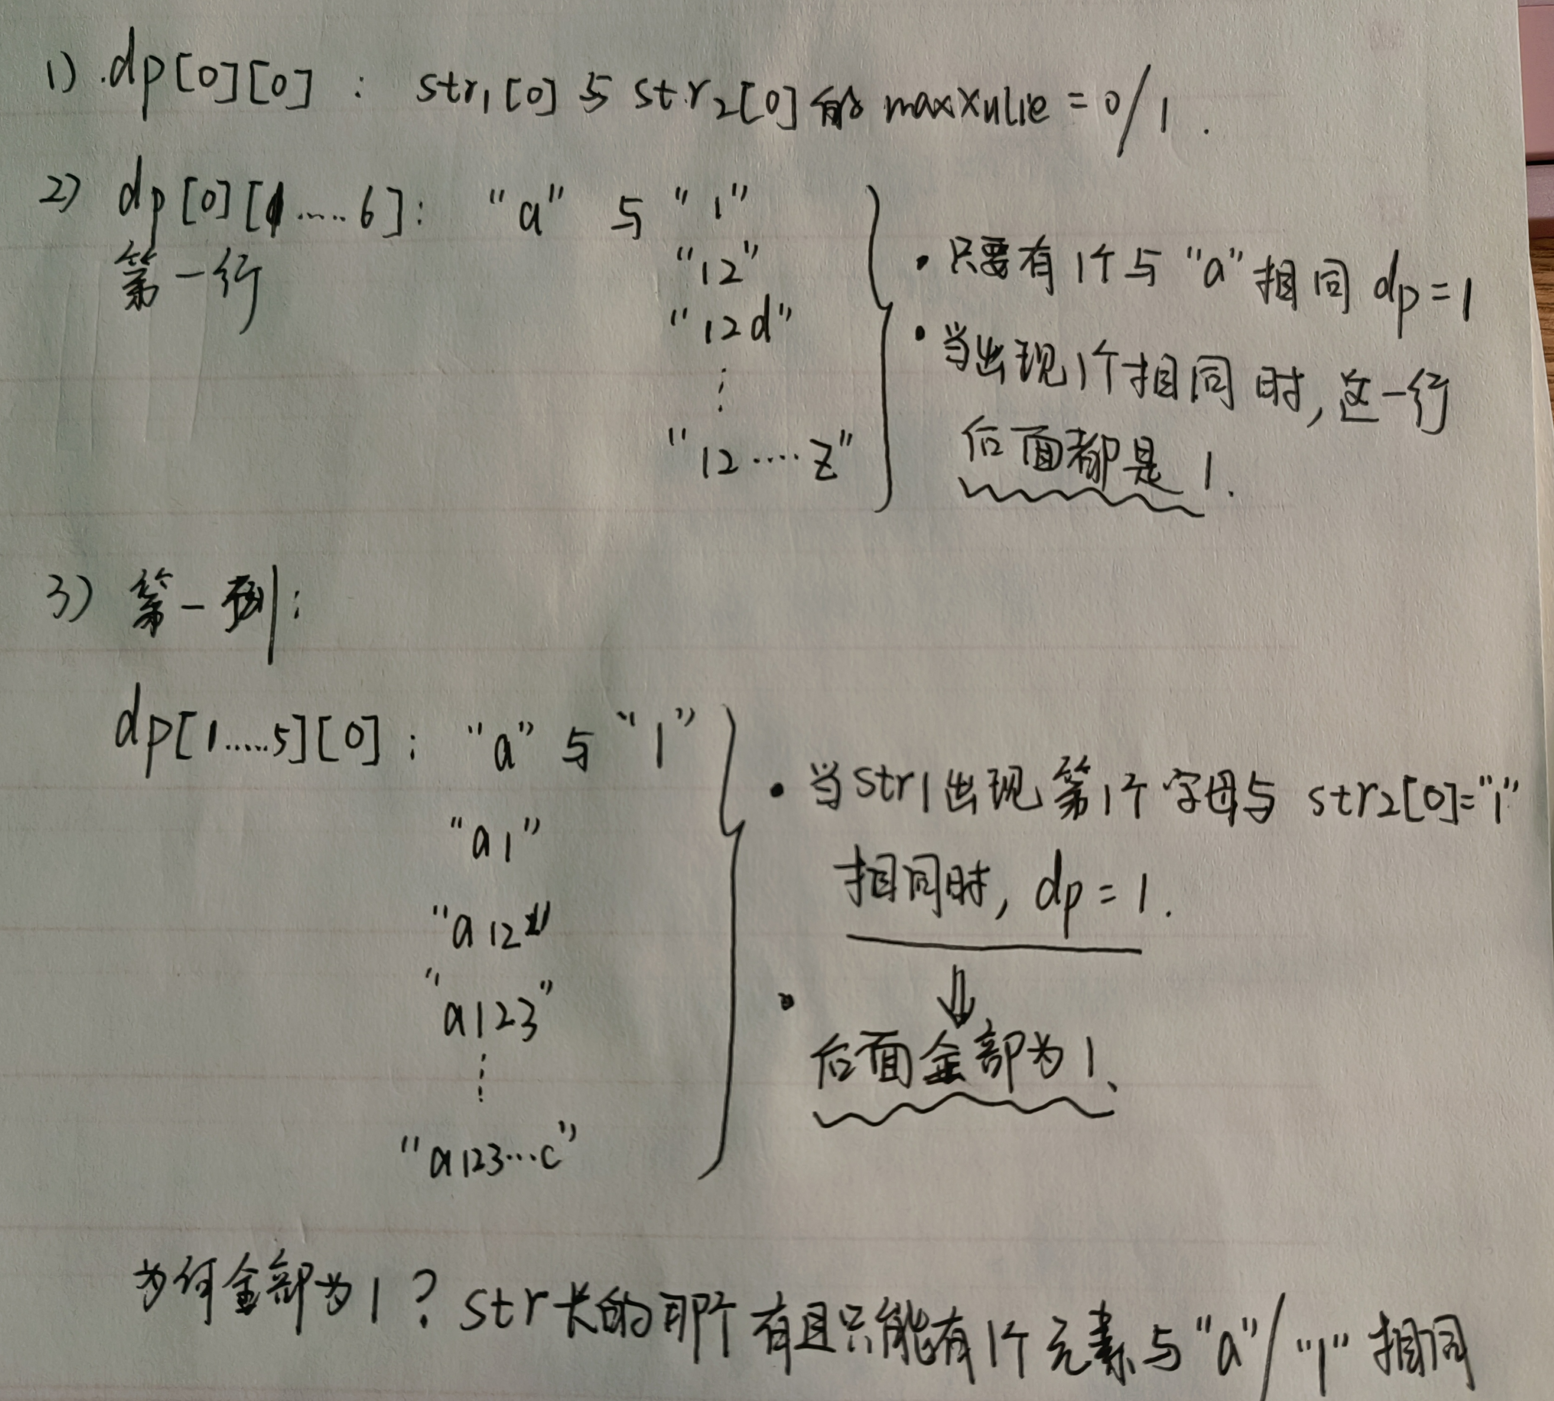 1) .dp[0][0] : str1[0]与str2[0]的maxXulie = 0/1.
2) dp[0][1.....6]: "a" 与 "1"
第一行
"12"
"12d"
⋮
"12....z"
• 只要有1个与"a"相同 dp=1
• 当出现1个相同时,这一行
后面都是1.
3) 第一列:
dp[1.....5][0]: "a"与"1"
"a1"
"a12"
"a123"
⋮
"a123...c"
• 当str1出现第1个字母与 str2[0]="1"
相同时, dp=1.
⇓
• 后面全部为1、
为何全部为1? str长的那个有且只能有1个元素与"a"/"1"相同